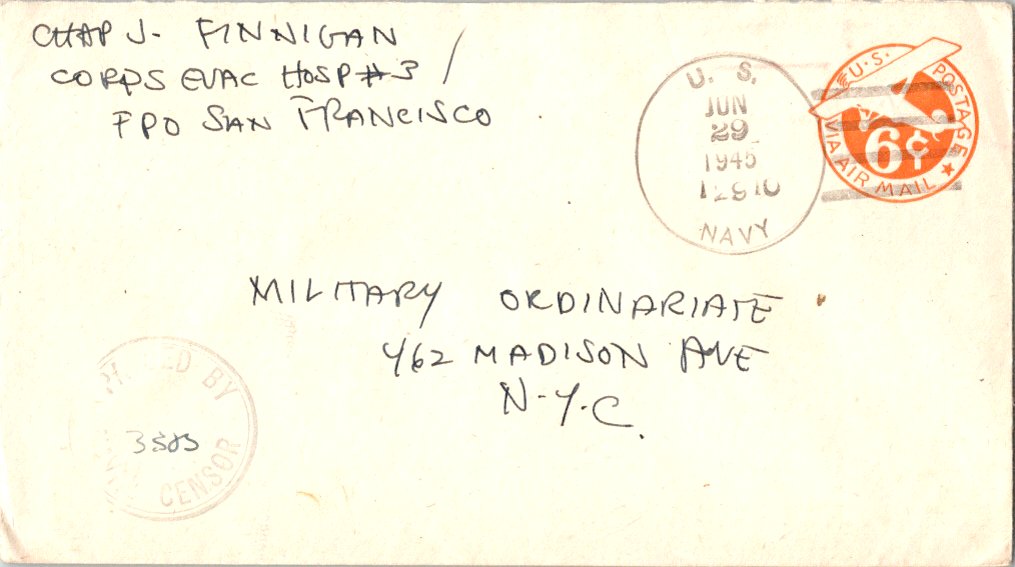 CHAP J. FINNIGAN
CORPS EVAC HOSP #3
FPO SAN FRANCISCO
U. S.
JUN
29
1945
NAVY
U.S. POSTAGE
6¢
VIA AIR MAIL
MILITARY ORDINARIATE
462 MADISON AVE
N.Y.C.
BY
CENSOR